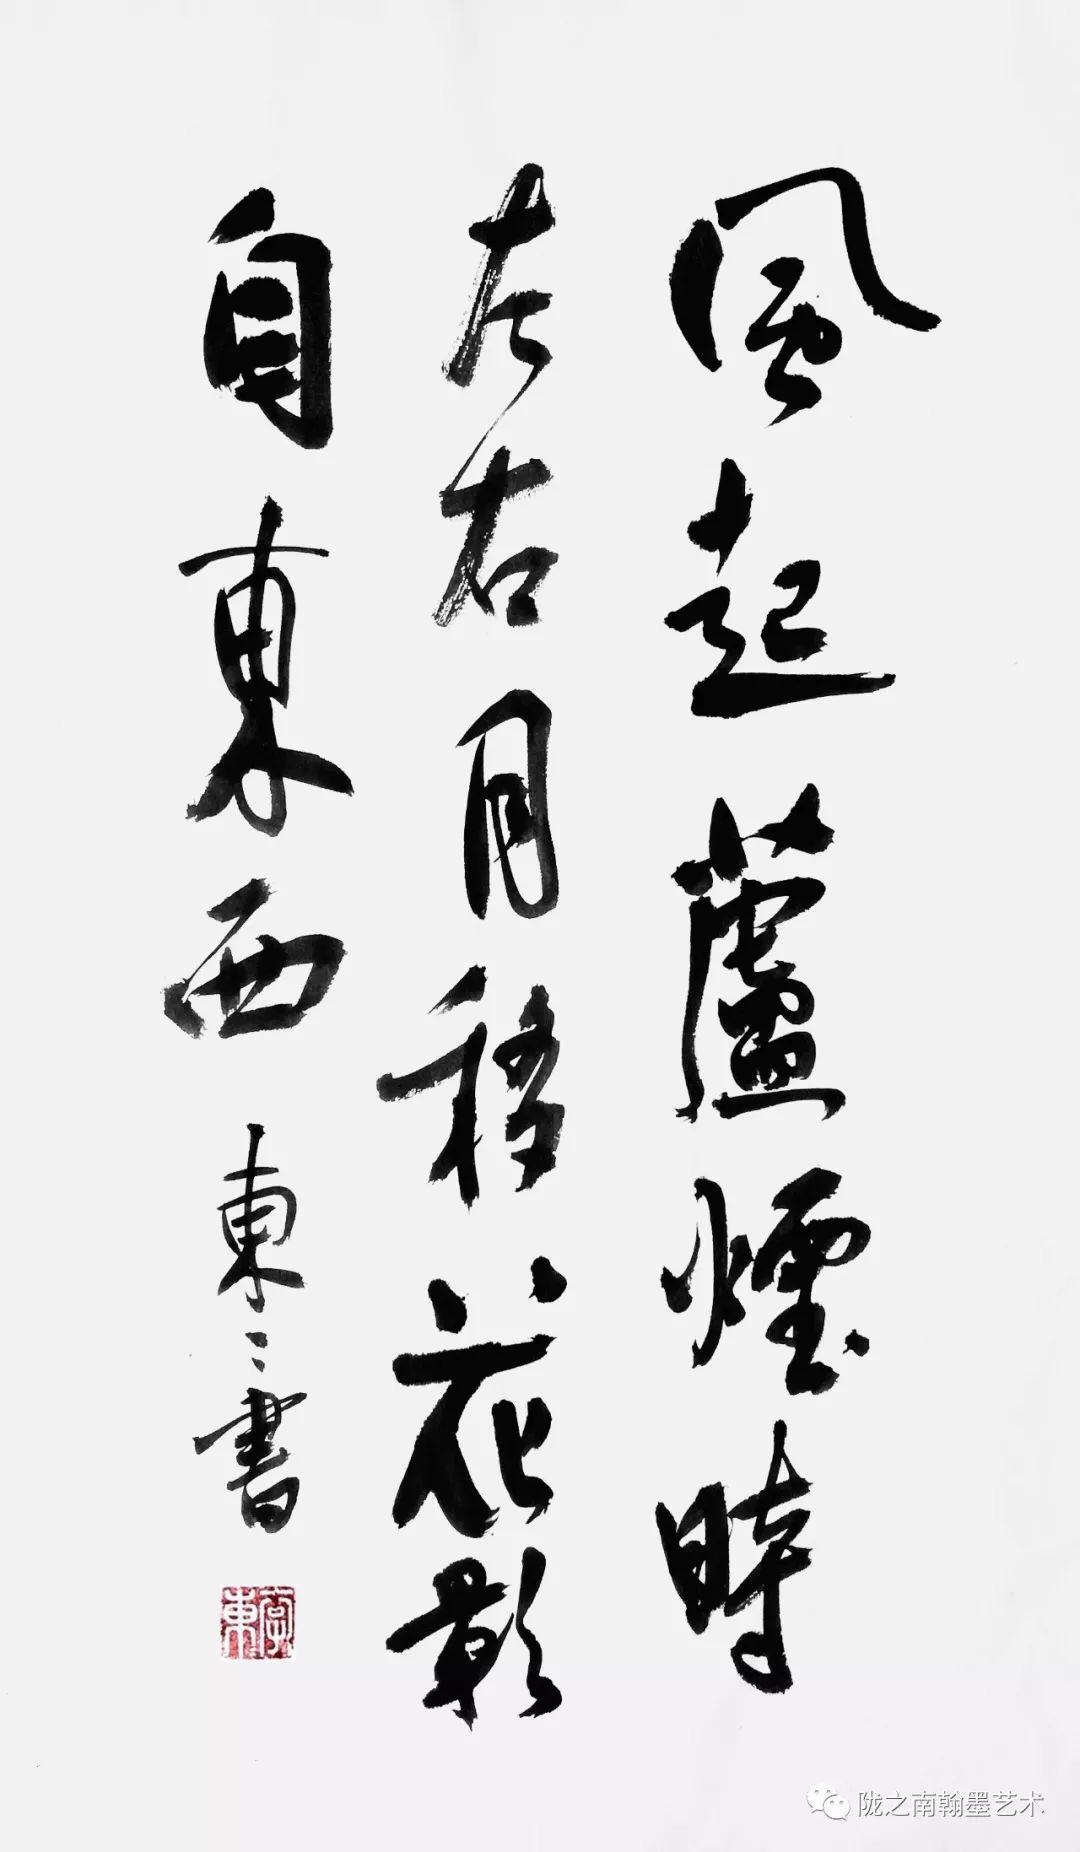 風起蘆煙時
左右月移花影
自東西
東〻書
陇之南翰墨艺术